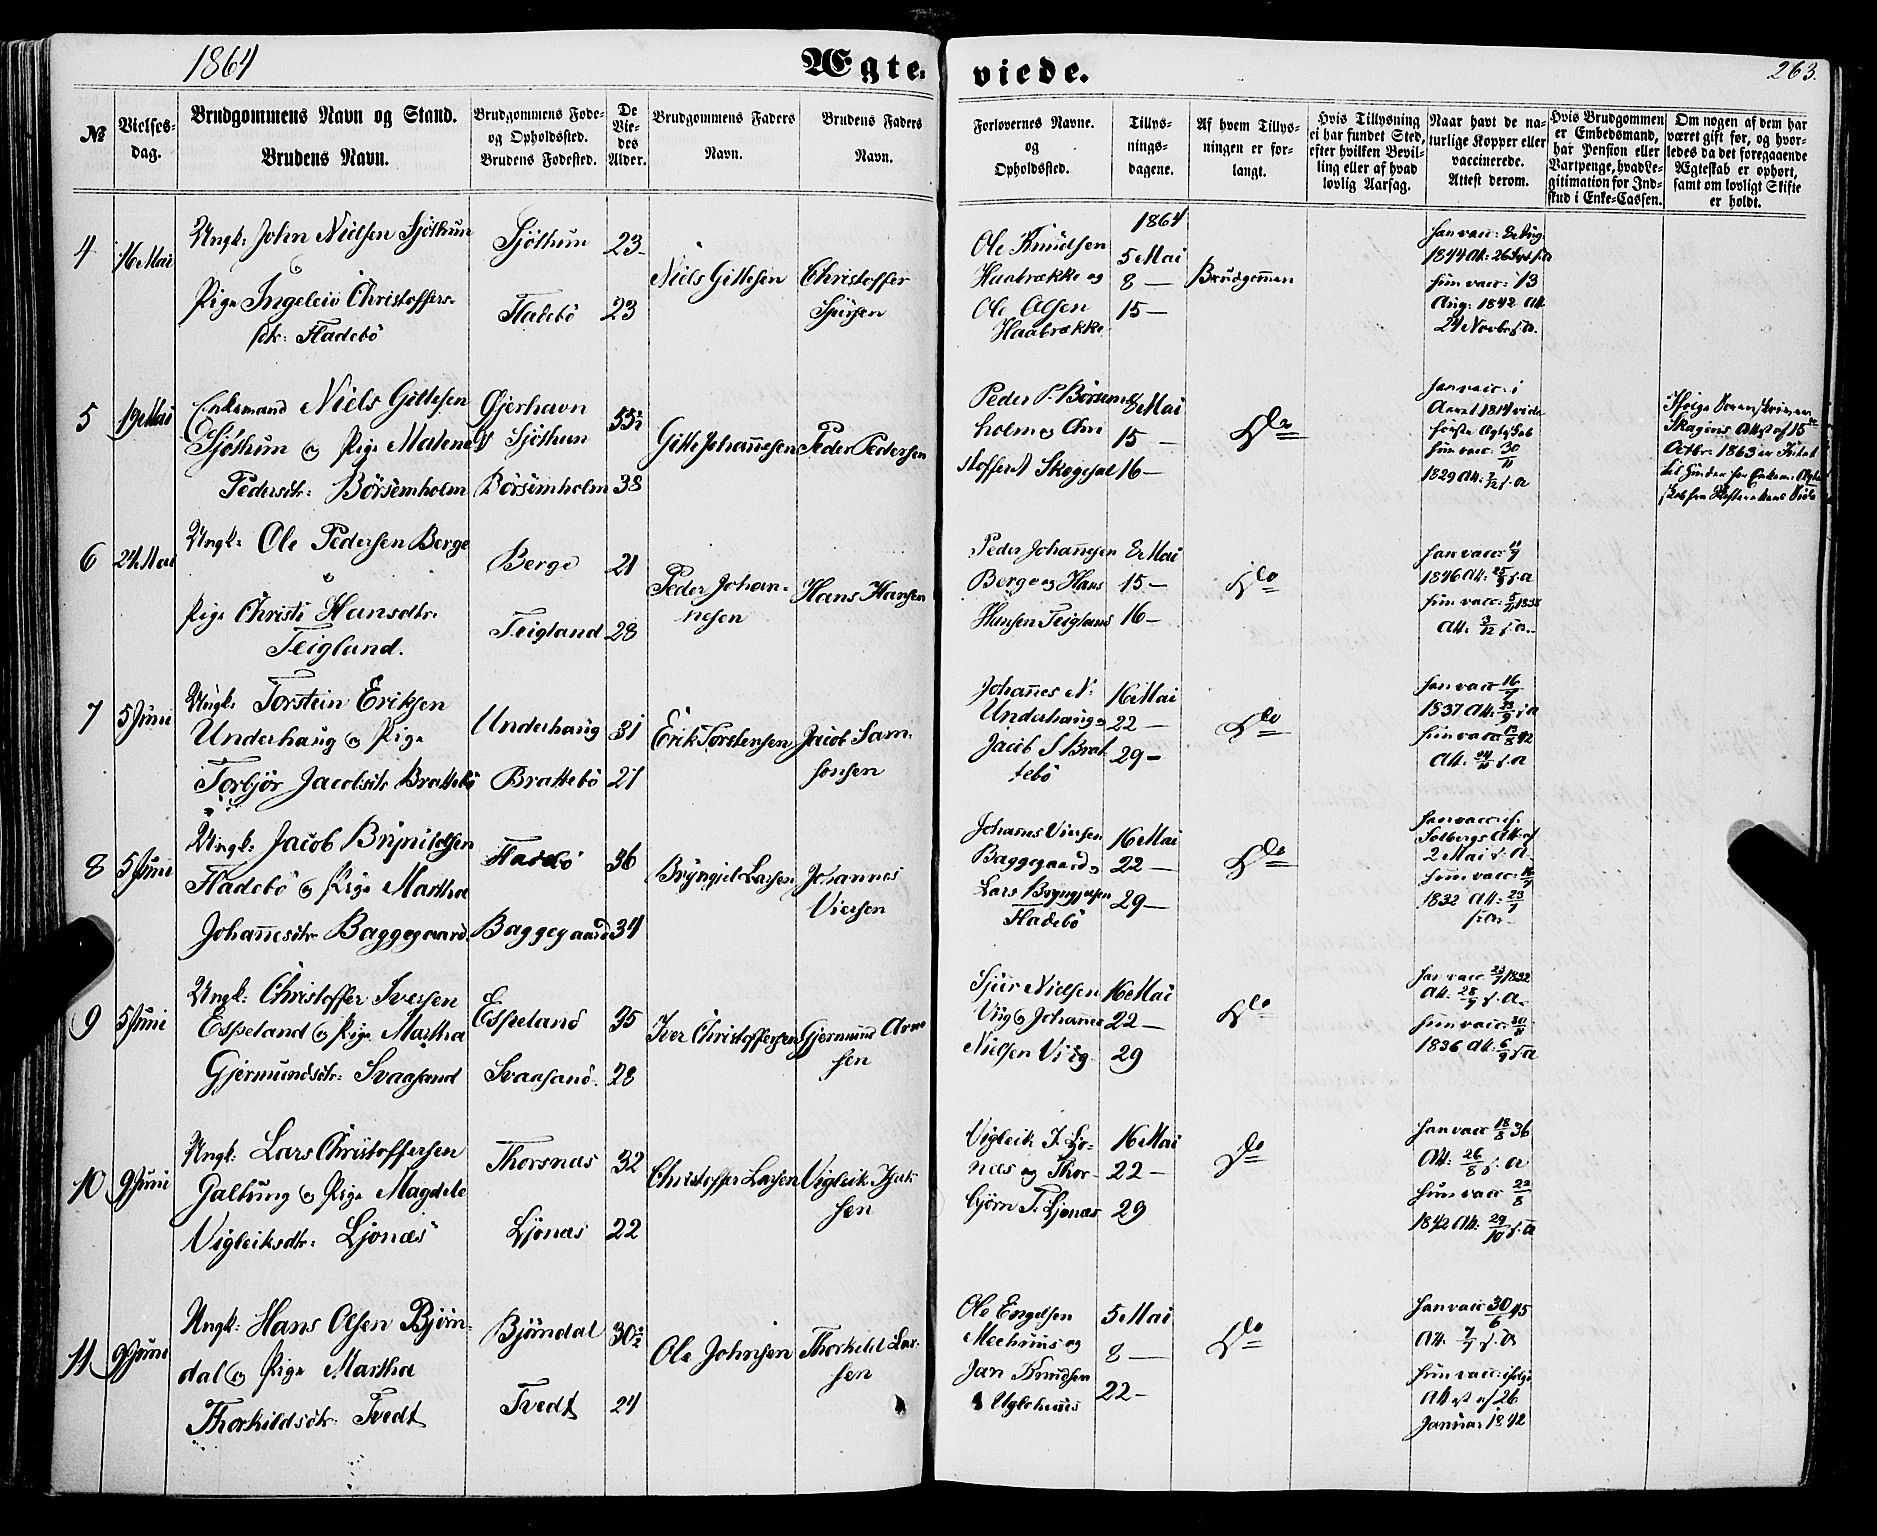 1864
Ægte-
viede.
263.
№
Vielses-
dag.
Brudgommens Navn og Stand.
Brudens Navn.
Brudgommens Føde-
og Opholdssted.
Brudens Fødested.
De
Vie-
des
Alder.
Brudgommens Faders
Navn.
Brudens Faders
Navn.
Forlovernes Navne.
og
Opholdssted.
Tillys-
nings-
dagene.
Af hvem Tillys-
ningen er for-
langt.
Hvis Tillysning
ei har fundet Sted,
efter hvilken Bevil-
ling eller af hvad
lovlig Aarsag.
Naar havt de na-
turlige Kopper eller
vaccinerede.
Attest derom.
Hvis Brudgommen
er Embedsmand,
har Pension eller
Vartpenge, hvad Le-
gitimation for Ind-
skud i Enke-Cassen.
Om nogen af dem har
været gift før, og hvor-
ledes da det foregaaende
Ægteskab er ophørt,
samt om lovligt Skifte
er holdt.
4
16 Mai
Ungk: John Nielsen Sjöthun
o
Pige Ingeleiv Christoffers-
dtr: Fladebö
Sjöthun
Fladebö
23
23
Niels Gittesen
Christoffer
Ole Knudsen
Haabrække og
Ole Olsen
Haabrække
1864
5 Mai
8 —
15 —
Brudgommen
Han vacc:
1844 Att: 26 Sept s.a
Hun vacc: 13
Aug: 1842 Att
24 Novbr s.a.
5
19 Mai
Enkemand Niels Gittesen
Sjöthun og Pige Malene
Pedersdtr: Börsemholm
Gjerhavn
Sjöthun
Börsemholm
55½
38
Gitte Johannesen
Peder Pedersen
Peder P. Börsem-
holm og Chri
stoffer Skogesal
8 Mai
15 —
16 —
Do
Han vacc: i
Aaret 1814 vide
første Ægteskab
Hun vacc: 30/11
1829 Att: s.a
Ifølge Sorenskriver
Skagens Attest af 15de
Octbr: 1863 er Intet
til Hinder for Enkem: Ægte
skab fra Skifterettens Side
6
24 Mai
Ungk: Ole Pedersen Berge
o
Pige Christi Hansdtr:
Teigland.
Berge
Teigland
21
28
Peder Johan-
nesen
Hans Hansen
Peder Johannesen
Berge og Hans
Hansen Teigland
8 Mai
15 —
16 —
Do
Han vacc: 11/9
1846 Att: 25/9 s.a
Hun vacc: 5/11 1838
Att: 3/12 s.a.
7
5 Juni
Ungk: Torstein Eriksen
Underhaug og Pige
Torbjör Jacobsdtr Brattebö
Underhaug
Brattebö
31
21
Erik Torstensen
Jacob Sam-
sonsen
Johannes N.
Underhaug o
Jacob S Brat
tebö
16 Mai
22 —
29 —
Do
Han vacc 16/9
1837 Att: s.a
Hun vacc 42
Att: s.a
8
5 Juni
Ungk: Jacob Brynildsen
Fladebö og Pige Martha
Johannesdtr Baggegaard.
Fladebö
Baggegaard
36
34
Bryngjel Larsen
Johannes
Viersen
Johannes Viersen
Baggegaard o
Lars Bryngjelsen
Fladebö
16 Mai
22 —
29 —
Do
Han vacc: if.
Solbergs Att. af
2 Mai d. A.
Hun vacc: 16/7
1832 Att: 23/7
s.a.
9
5 Juni
Ungk: Christoffer Iversen
Espeland og Pige Martha
Gjermundsdtr: Svaasand
Espeland
Svaasand
35
28
Iver Christoffersen
Gjermund Arne
sen
Sjur Nielsen
Viig og Johannes
Nielsen Viig
16 Mai
22 —
29
Do
Han vacc 1832
Att: 28/7 s.a.
Hun vacc: 30/8
1836 Att: 6/9 s.a
10
9 Juni
Ungk: Lars Christoffersen
Galtung og Pige Magdele
Vigleiksdtr: Ljonæs
Thorsnæs
Ljonæs
32
22
Christoffer Larsen
Vigleik
sen
Vigleik I. Ljo-
næs og Thor-
björn T. Ljonæs
16 Mai
22 —
29
Do
Han vacc 18/8 36
Att: 26/8 s.a
Hun vacc 22/8
1842 Att: 29/10 s.a
11
9 Juni
Ungk: Hans Olsen Björn-
dal og Pige Martha
Thorkildsdtr: Tvedt
Björndal
Tvedt
30½
24
Ole Johnsen
Thorkild Lar-
sen
Ole Engelsen
Meehuus og
Jan Knudsen
Uglehuus
5 Mai
8 —
22 —
Do
Han vacc 30/6 45
Att: 7/7 s.a
Hun vacc: ifølge
Attest af 26
Januar 1842